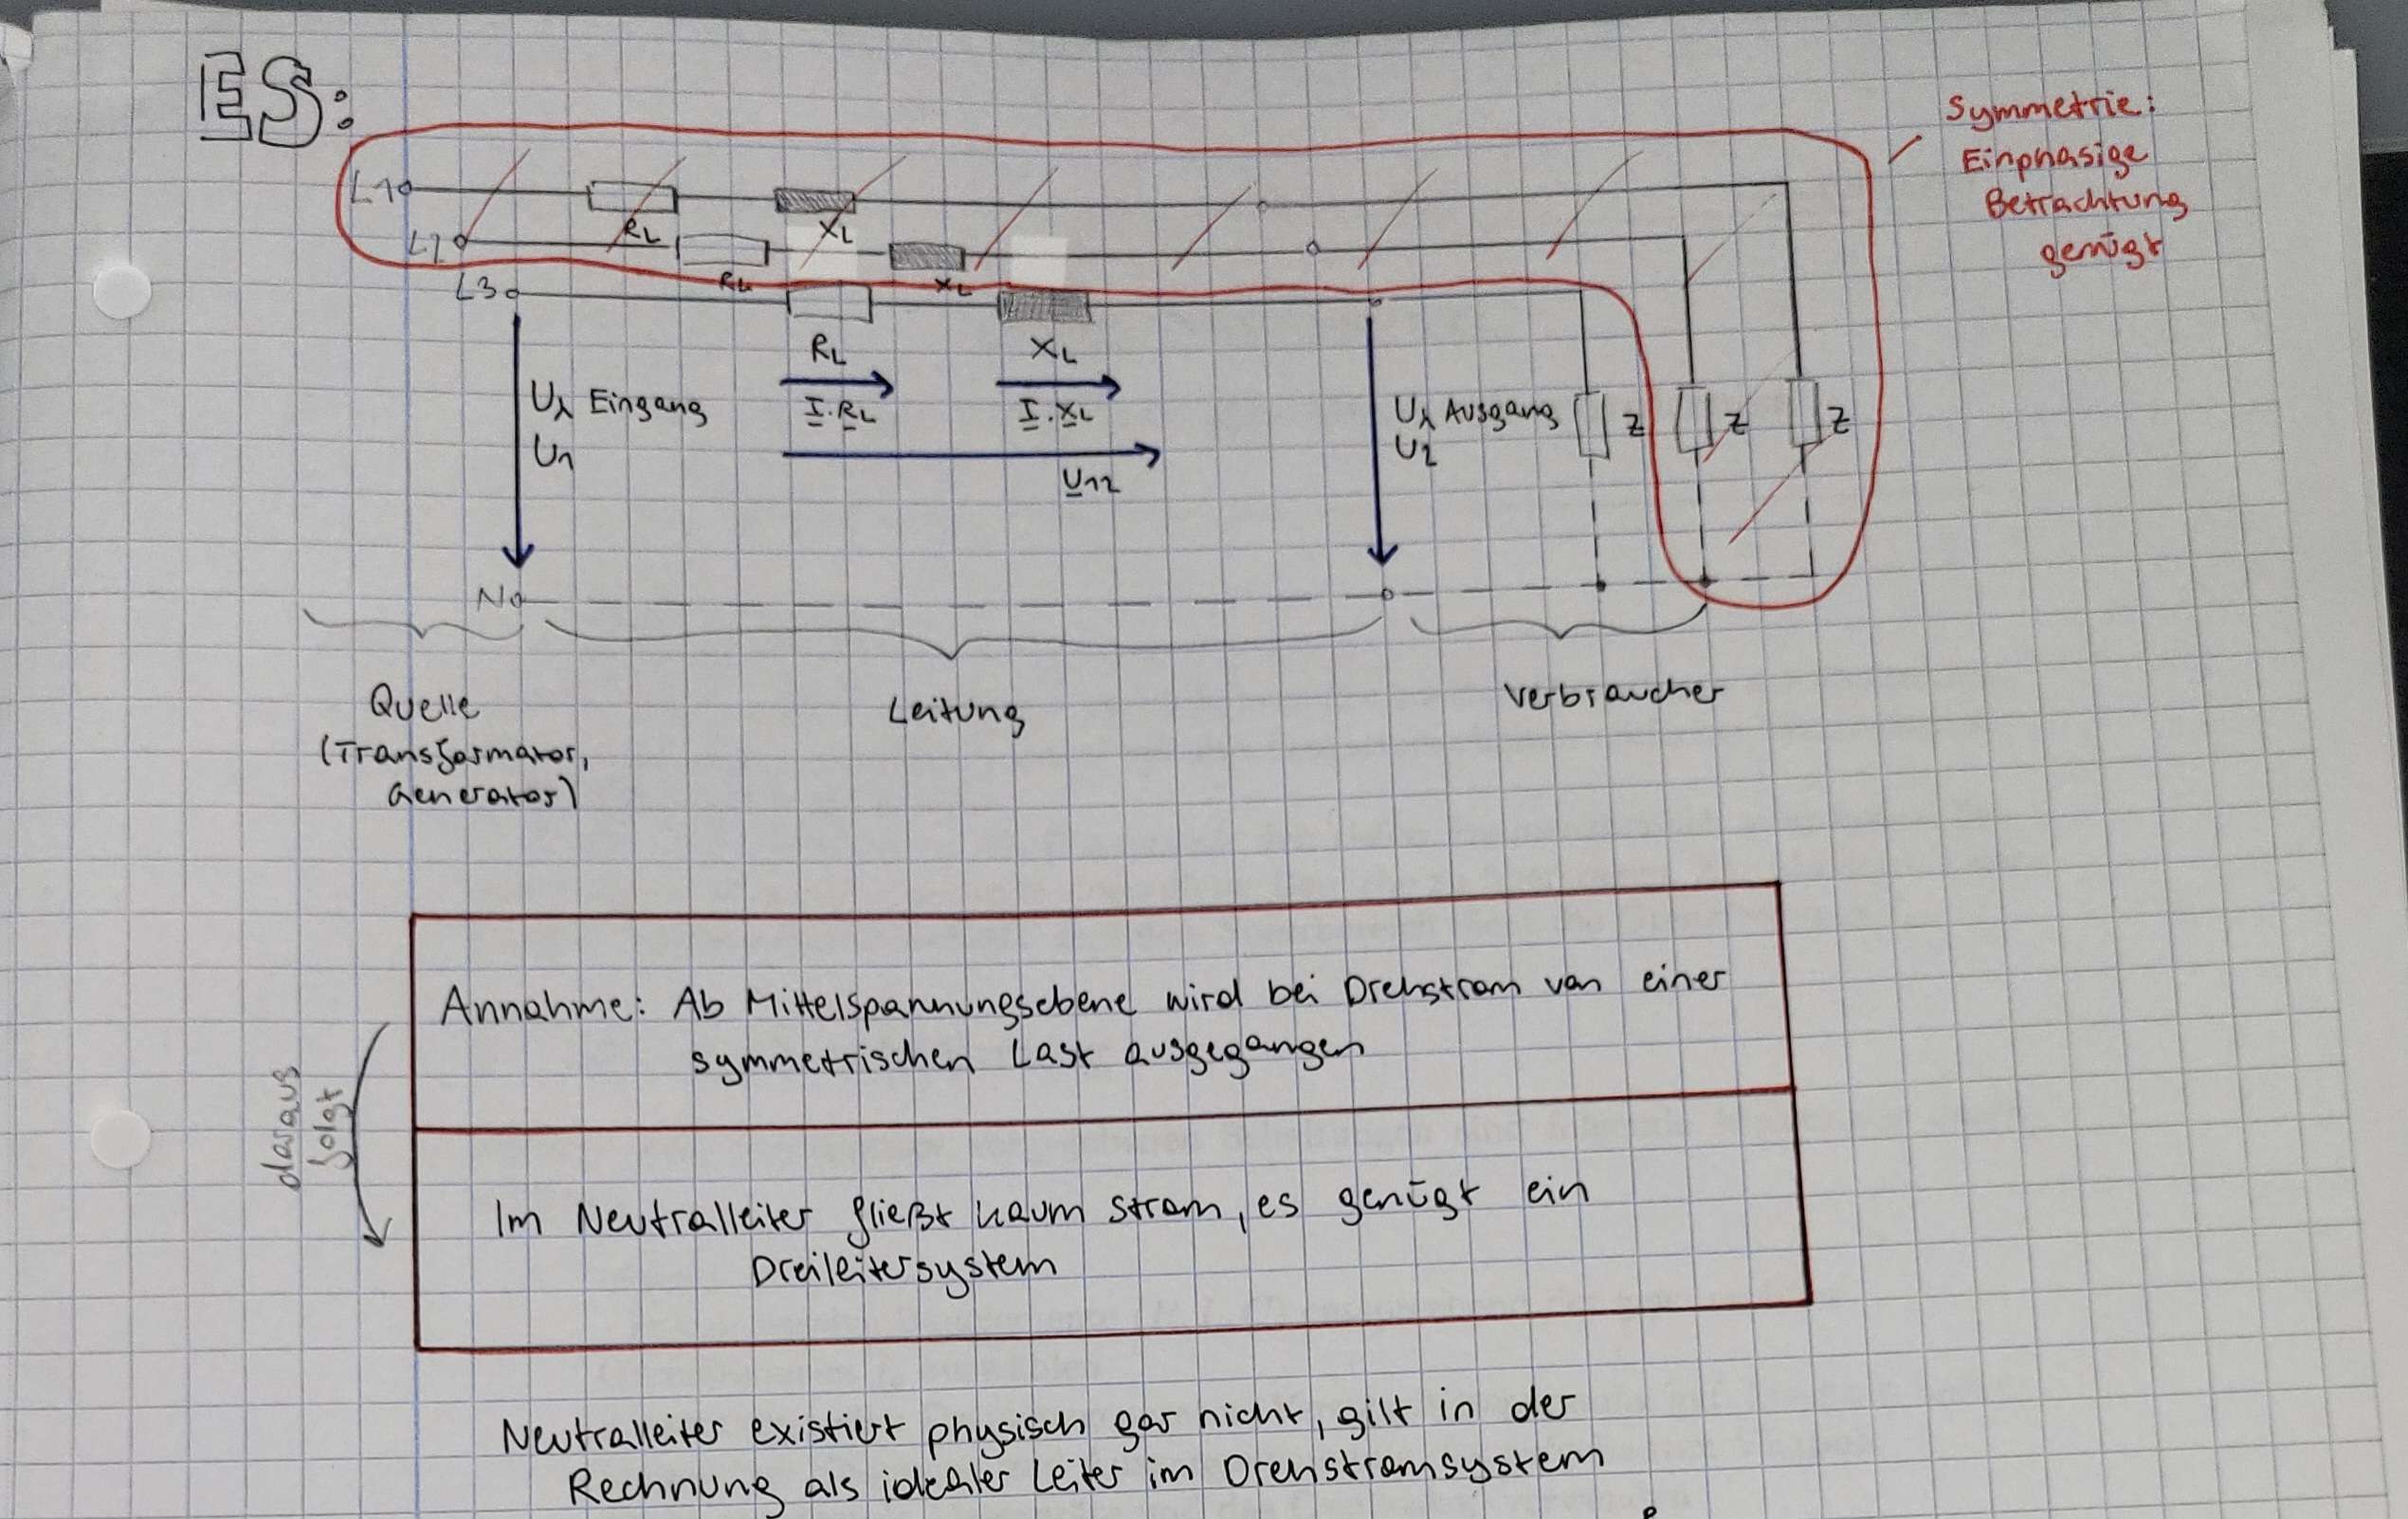 ES:
Symmetrie:
Einphasige
Betrachtung
genügt
L1
RL
XL
L2
RL
XL
L3
RL
XL
Uλ Eingang
U1
I·RL
I·XL
U12
Uλ Ausgang
U2
Z
Z
Z
N
Quelle
(Transformator,
Generator)
Leitung
Verbraucher
Annahme: Ab Mittelspannungsebene wird bei Drehstrom von einer
symmetrischen Last ausgegangen
daraus
folgt
Im Neutralleiter fließt kaum Strom, es genügt ein
Dreileitersystem
Neutralleiter existiert physisch gar nicht, gilt in der
Rechnung als idealer Leiter im Drehstromsystem